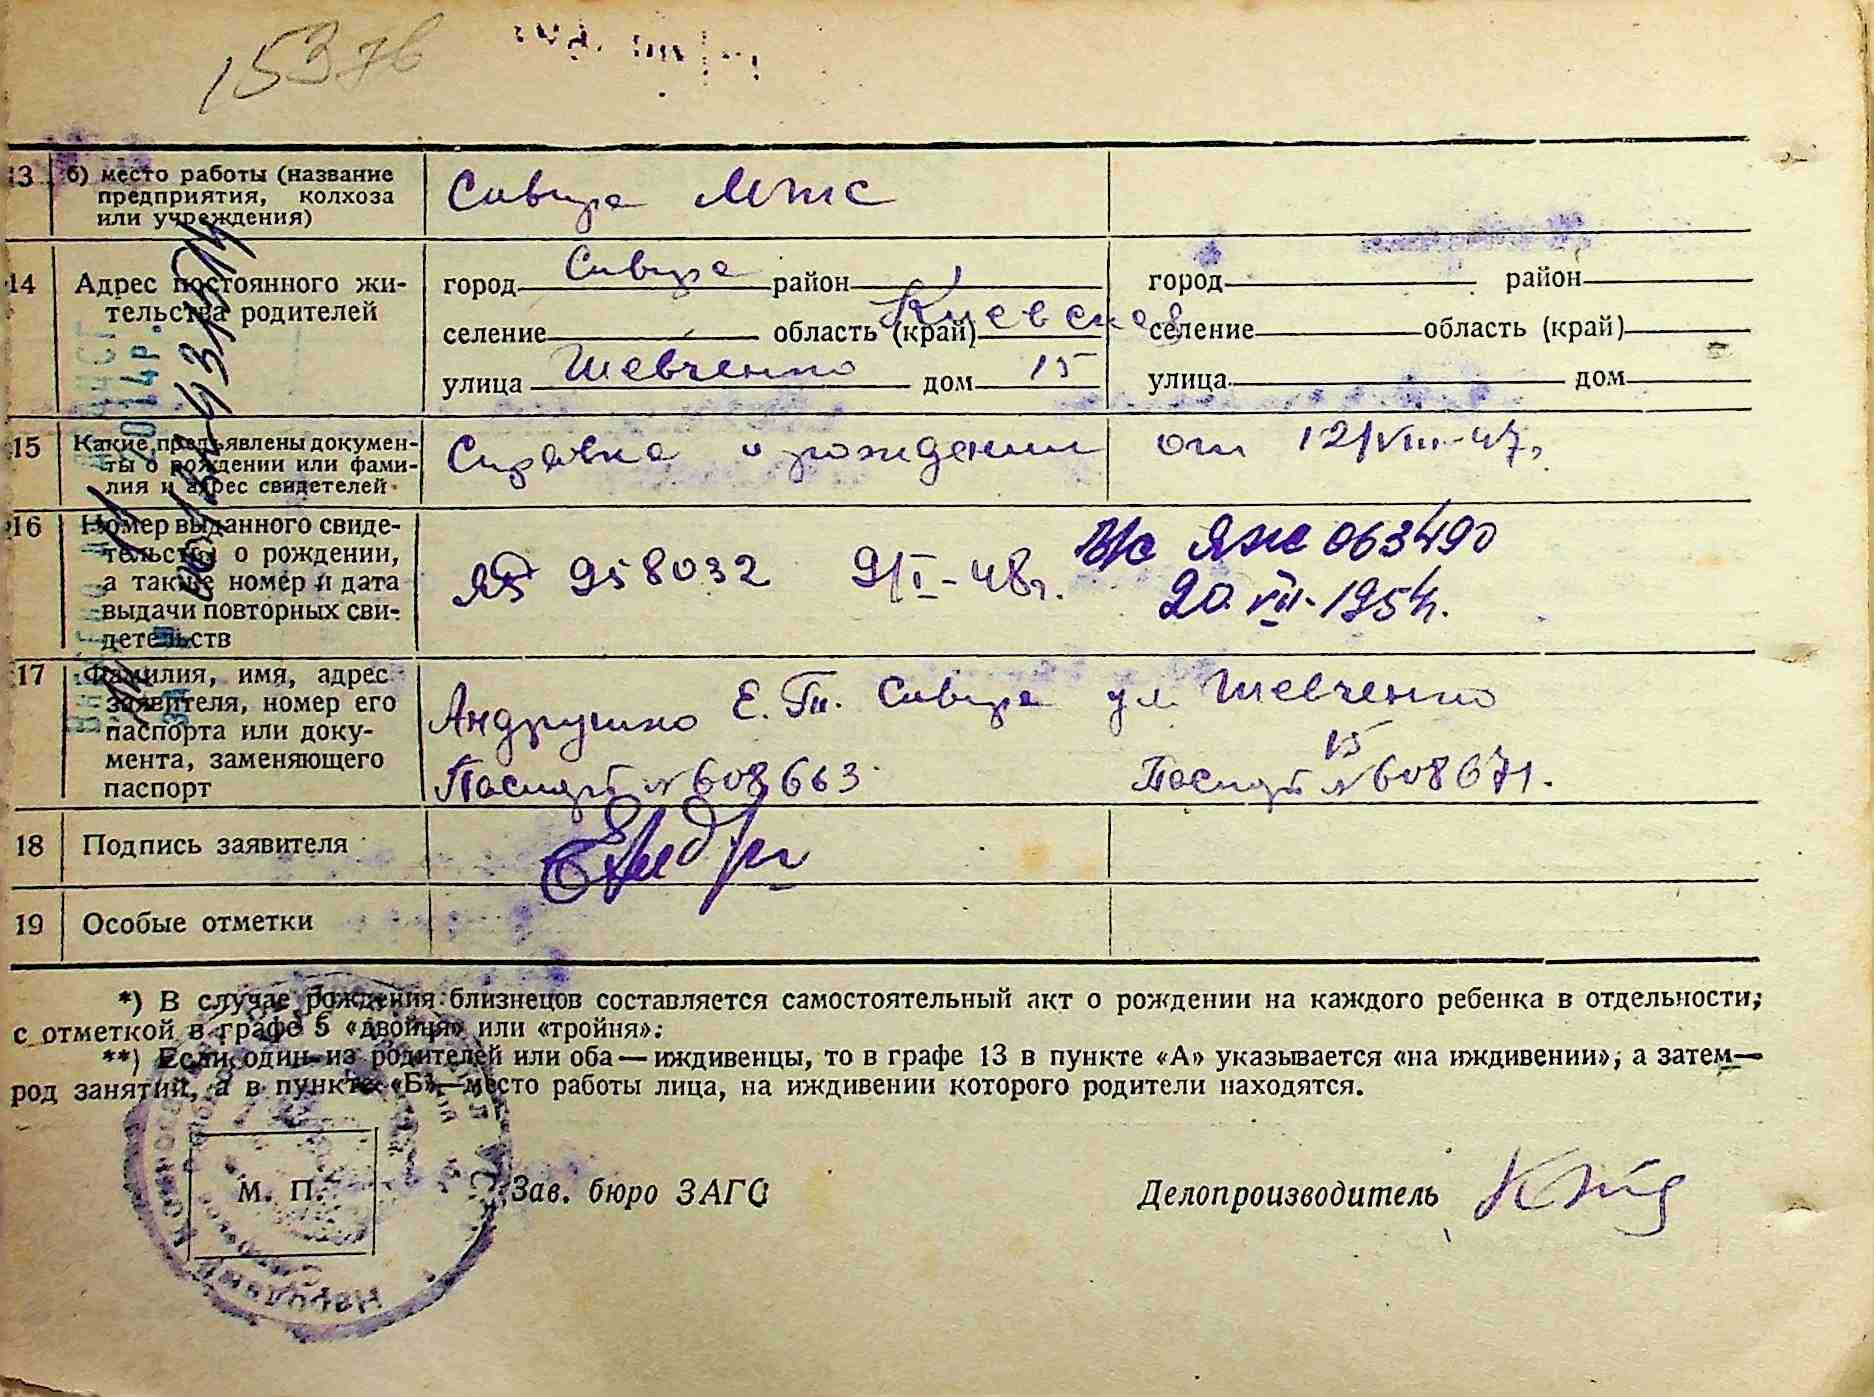 1537б
13 б) место работы (название Сквира МТС
предприятия, колхоза
или учреждения)
14 Адрес постоянного жи- город Сквира район город район
тельства родителей селение область (край) Киевская селение область (край)
улица Шевченко дом 15 улица дом
15 Какие предъявлены докумен- Справка о рождении от 12/VIII-47г.
ты о рождении или фами-
лия и адрес свидетелей
16 Номер выданного свиде-
тельства о рождении, В/с ЯЖ 063490
а также номер и дата ЯБ 958032 9/I-48г.
выдачи повторных сви- 20.VII-1954г.
детельств
17 Фамилия, имя, адрес
заявителя, номер его Андрушко Е. Сквира ул Шевченко
паспорта или доку- 15
мента, заменяющего Паспорт № 608663 Паспорт № 608671.
паспорт
18 Подпись заявителя ЕАндр
19 Особые отметки
*) В случае рождения близнецов составляется самостоятельный акт о рождении на каждого ребенка в отдельности,
с отметкой в графе 5 «двойня» или «тройня».
**) Если один из родителей или оба — иждивенцы, то в графе 13 в пункте «А» указывается «на иждивении», а затем—
род занятий, а в пункте «Б»—место работы лица, на иждивении которого родители находятся.
М. П. Зав. бюро ЗАГС Делопроизводитель